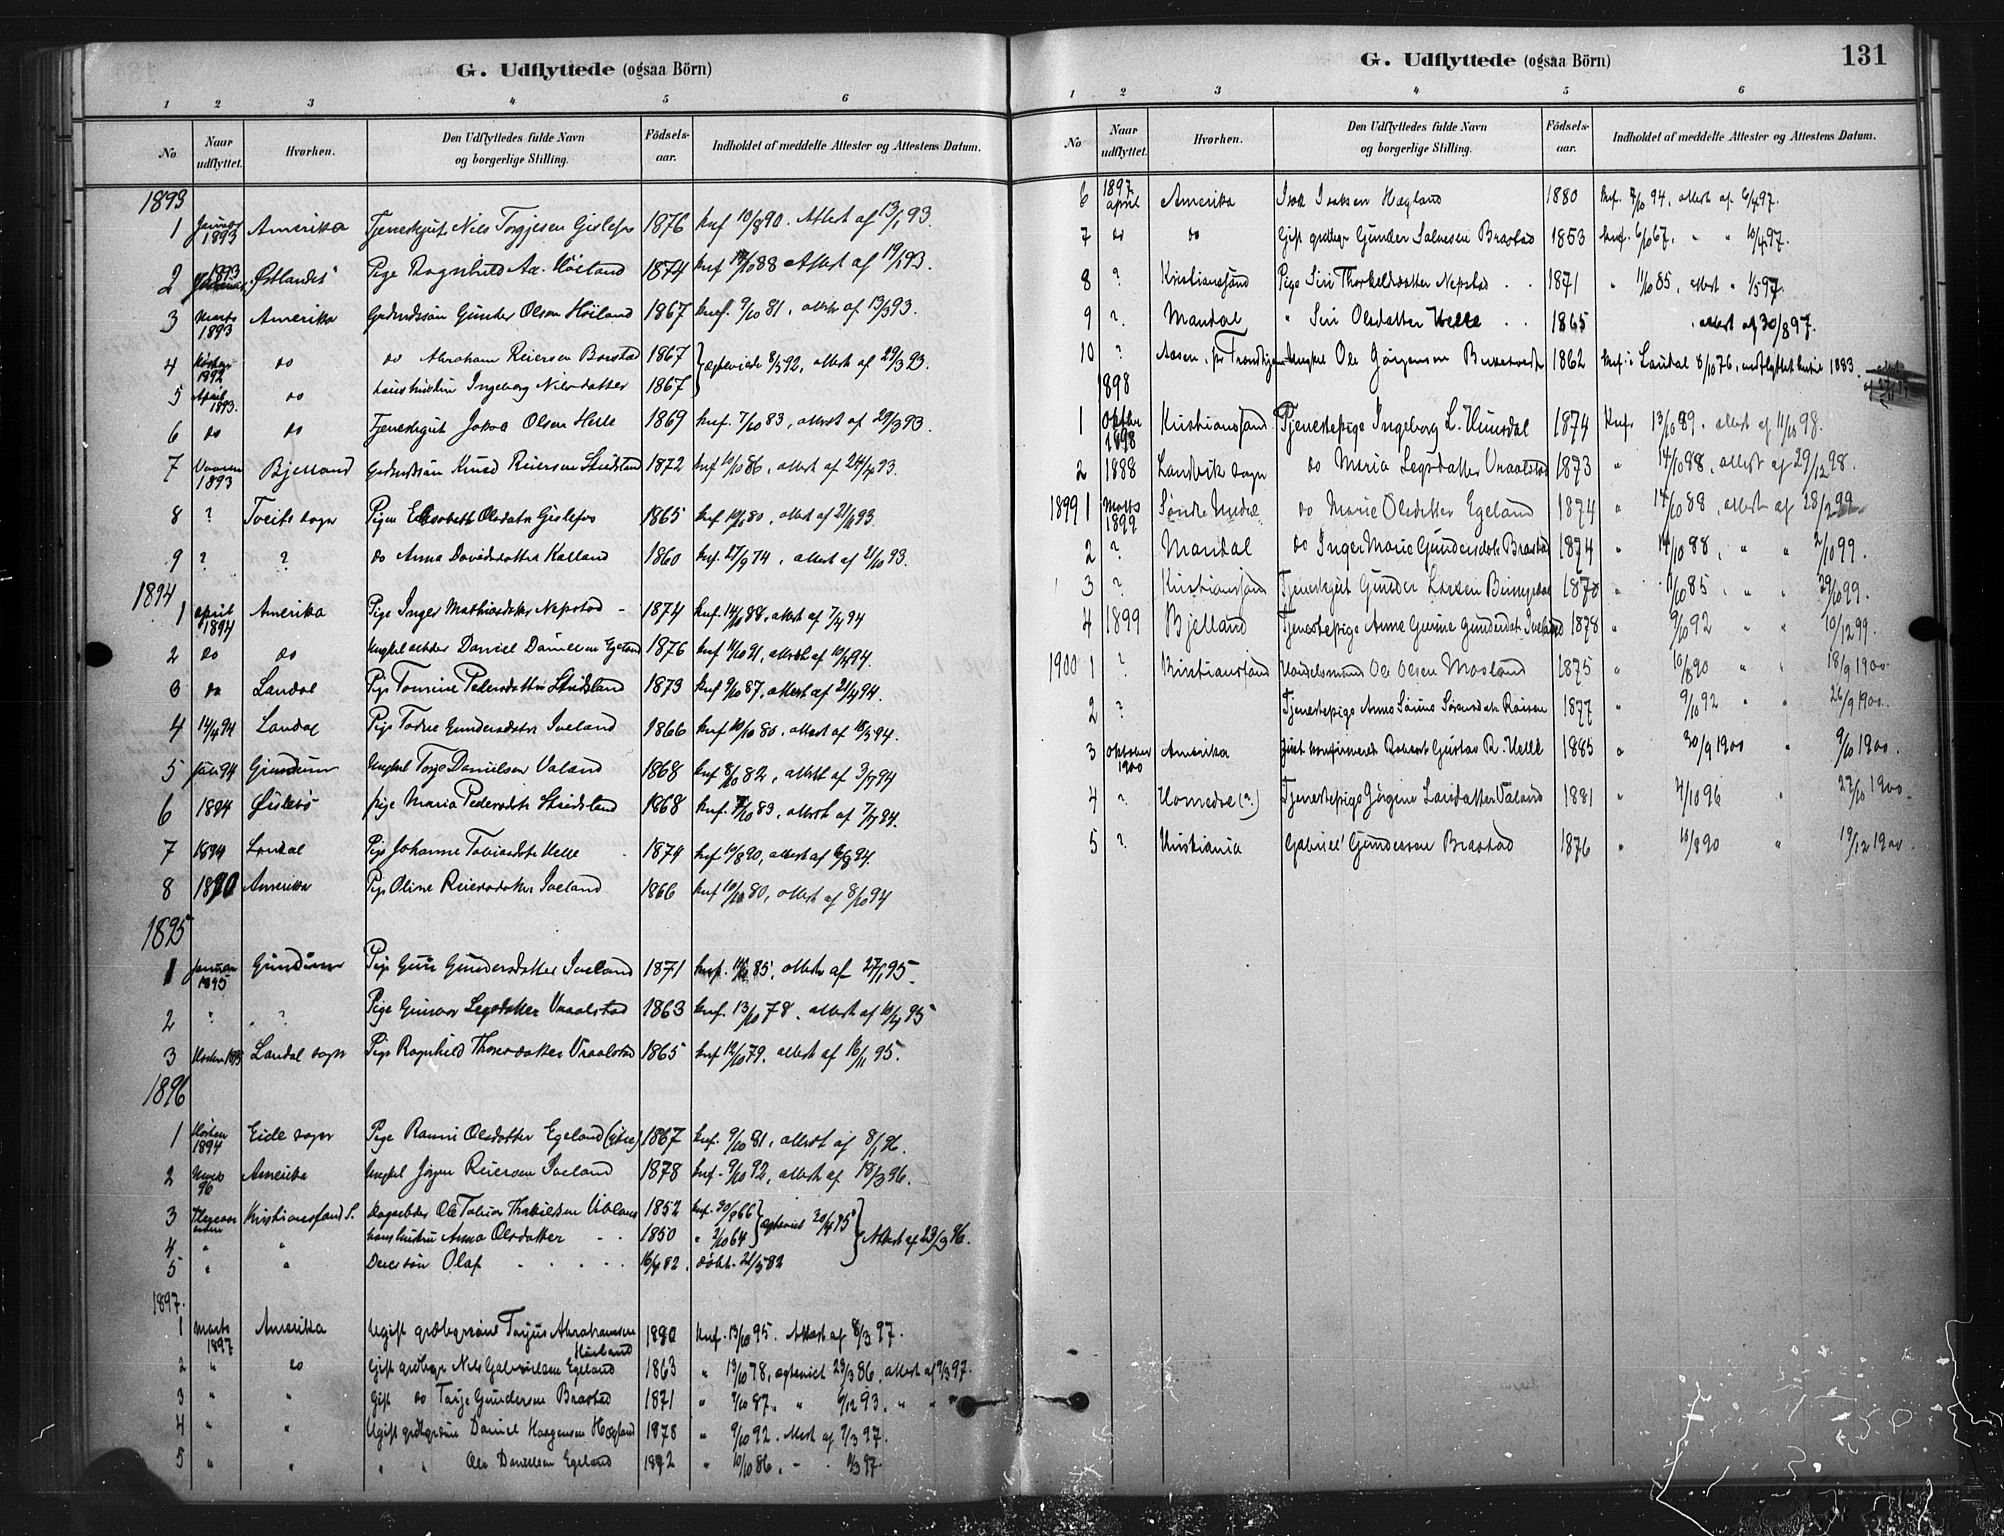 G. Udflyttede (ogsaa Börn)
1 2 3 4 5 6
No Naar udflyttet. Hvorhen. Den Udflyttedes fulde Navn og borgerlige Stilling. Födsels-aar. Indholdet af meddelte Attester og Attestens Datum.
1893
1 1893 Amerika Tjenestegut Nils Torgjesen 1876 knf 10/8 90. Attest af 13/1 93.
2 1893 Østlandet Pige Ragnhild Aa. Höiland 1874 knf 88 Attest af 19/1 93.
3 Marts 1893 Amerika Gunder Olsen Höiland 1867 knf. 9/10 81, attest af 13/3 93.
4 1892 do do Abraham Reiersen Brastad 1867 ægteviede 8/5 92, attest af 29/3 93.
5 April 1893. do hans hustru Ingeborg Nilsdatter 1867
6 do do Tjenestegut Jakob Olsen Helle 1869 knf. 7/10 83, attest af 29/3 93.
7 Vaaren 1893 Bjelland Knud Reiersen Stridsland 1872 knf 10/10 86, attest af 24/4 93.
8 ? Tveits sogn Pigen Elisabeth Olsdatr Gislefos 1865 knf 10/10 80, attest af 93.
9 ? ? do Anna Davidsdatter Kalland 1860 knf. 27/9 74, attest af 2/10 93.
1894
1 april 1894 Amerika Pige Inger Mathiasdatr Nepstad - 1874 knf. 14/10 88, attest af 7/4 94
2 do do Daniel Danielsen Egeland 1876 knf 11/10 91, attest af 10/4 94.
3 do Laudal Pige Tomine Pedersdatter Stridsland 1873 knf 9/10 87, attest af 21/4 94.
4 14/4 94 Laudal Pige Todne Gundersdatr Iveland 1866 knf 10/10 80, attest af 94.
5 94 Grindum Ungkl Torje Danielsen Valand 1868 knf 8/10 82, attest af 3/7 94
6 1894 Öislebö pige Maria Pedersdtr Stridsland 1868 knf. 7/10 83, attest af 7/7 94.
7 1894 Laudal Pige Johanne Tobiasdtr Helle 1874 knf 10/8 90, attest af 6/8 94.
8 1890 Amerika Pige Oline Reiersdatter Iveland 1866 knf 10/10 80, attest af 8/10 94
1895
1 Januar 1895 Grindum Pige Guri Gundersdatter Iveland 1871 knf. 11/10 85, attest af 27/1 95.
2 ? ? Pige Gunvor Legsdatter Vraalstad 1863 knf. 13/10 78. attest af 10/4 95
3 Laudal sogn Pige Ragnhild Thoresdatter Vraalstad 1865 knf 12/10 79. attest af 16/11 95.
1896
1 Hösten 1894 Eide sogn Pige Ranni Olsdatter Egeland 1867 knf. 9/10 81, attest af 8/1 96.
2 Marts 96 Amerika Ungkl Jörgen Reiersen Iveland 1878 knf. 9/10 92, attest af 18/3 96.
3 Kristianssand S. Ole Tobias 1852 knf. 30/9 66 ægteviet 20/4 75 Attest af 23/3 96.
4 " " hans hustru Anna Olsdatter 1850 " 2/10 64
5 " " Deres sön Olaf 16/4 82. döbt. 21/5 82
1897.
1 Marts 1897 Amerika Ugift Tarjus Abrahamsen Höiland 1880 knf. 13/10 95. Attest af 8/3 97.
2 " do Gift Nils Gabrielsen Egeland 1863 " 13/10 78, ægteviet 23/3 86, attest af 9/3 97.
3 " " Gift do Tarje Gundersen Brastad 1871 " 9/10 87. " 9/12 93. " " "
4 " " Ugift Daniel Haagensen Hægland 1878 " 9/10 92. attest af 9/3 97.
5 " " " " Ole Danielsen Egeland 1872 " 10/10 86, 97.
G. Udflyttede (ogsaa Börn)
131
1 2 3 4 5 6
No Naar udflyttet. Hvorhen. Den Udflyttedes fulde Navn og borgerlige Stilling. Födsels-aar. Indholdet af meddelte Attester og Attestens Datum.
6 1897 april Amerika Isak Isaksen Hægland 1880 knf. 7/10 94, attest af 6/4 97.
7 do do Gift Gunder Salvesen Brastad 1853 knf. 6/10 67, " " 10/4 97.
8 ? Kristianssand Pige Siri Thorkeldsdatter Nepstad 1871 " 11/10 85, attest " 1/5 97.
9 ? Mandal " Siri Olsdatter Helle 1865 attest af 30/8 97.
10 ? Aasen, pr Trondhjem Ungkl Ole Jörgensen 1862 knf. i Laudal 8/10 76, udflyttet hertil 1883.
1898
1 Oktbr 1898 Kristianssand Tjenestepige Ingeborg L. Hunsdal 1874 knf. 13/10 89. attest af 11/10 98.
2 1888 Landvik sogn do Maria Legsdatter Vraalstad 1873 " 14/10 88, attest af 29/12 98.
1899 1 Marts 1899 Söndre Undal do Marie Olsdatter Egeland 1874 " 14/10 88, attest af 28/2 99
2 ? Mandal do Inger Marie Gundersdatr Brastad 1874 " 14/10 88. " " 2/10 99.
3 ? Kristianssand Tjenestegut Gunder Larsen 1870 " 11/10 85 " " 29/10 99.
4 1899 Bjelland Tjenestepige Anne Gurine Gundersdatr Iveland 1878 " 9/10 92 " " 10/12 99.
1900 1 ? Kristianssand Handelsmand Ole Olsen Mosland 1875 " 10/8 90 " " 18/9 1900
2 ? Tjenestepige 1877 " 9/10 92 " " 26/9 1900.
3 Oktober 1900 Amerika Robert Gustav R. Helle 1885 " 30/9 1900 " 9/10 1900.
4 ? (?) Tjenestepige Jörgine Larsdatter Valand 1881 " 4/10 96 " 27/10 1900.
5 ? Kristiania Gabriel Gundersen Brastad 1876 " 10/8 90 " 19/12 1900.